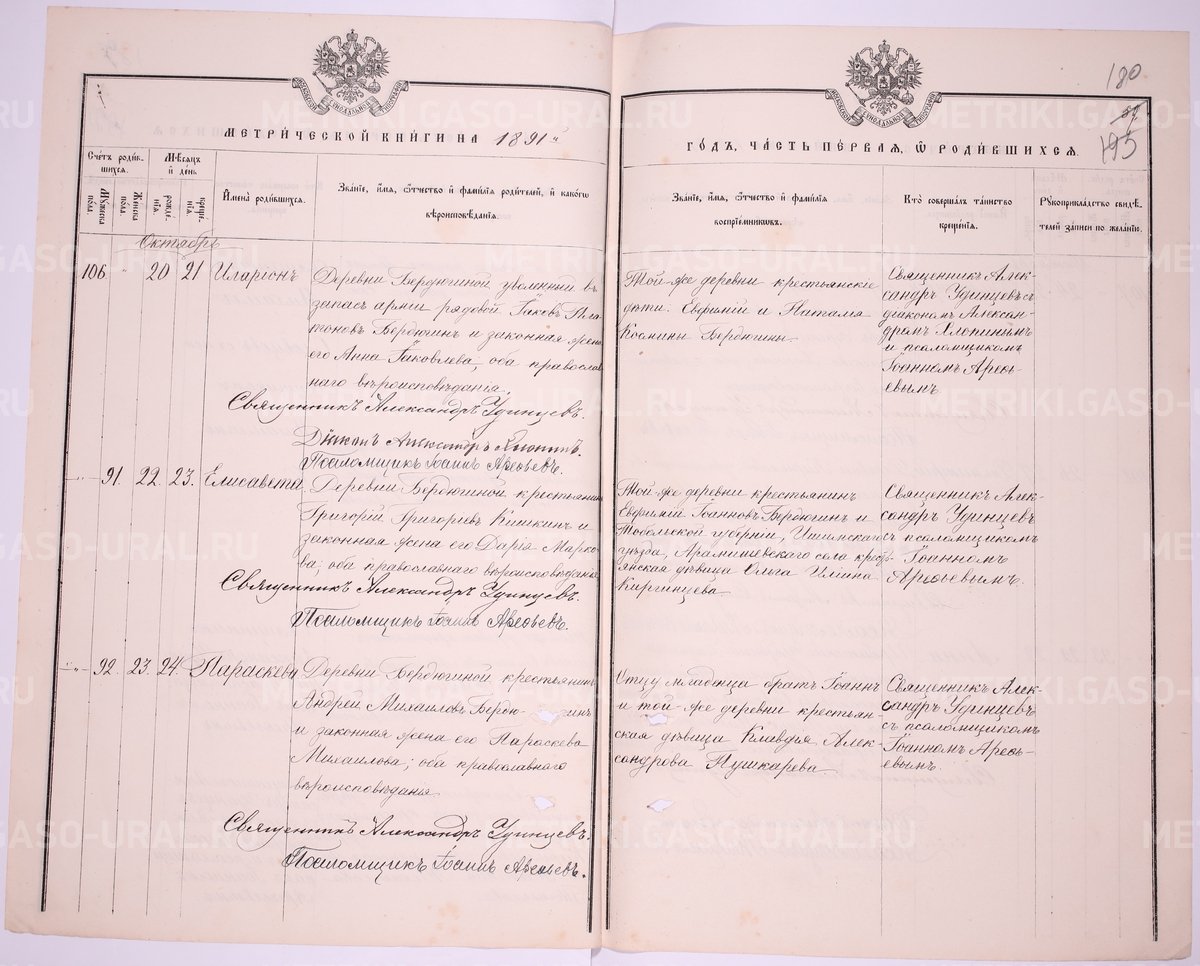 180
195
МЕТРИ́ЧЕСКОЙ КНИ́ГИ НА 1891й
ГО́ДЪ, ЧА́СТЬ ПЕ́РВАЯ, Ѡ҆ РОДИ́ВШИХСЯ.
Сче́тъ роди́в-
шихся.
Мꙋжеска по́ла.
Же́нска по́ла.
Мѣ́сяцъ
и҆ де́нь
рожде́нїя.
креще́нїя.
И҆мена̀ роди́вшихся.
Зва́нїе, и҆́мя, ѻ҆́тчество и҆ фами́лїя роди́телей, и҆ како́гѡ
вѣроисповѣ́данїя.
Зва́нїе, и҆́мя, ѻ҆́тчество и҆ фами́лїя
воспрїе́мникѡвъ.
Кто̀ соверша́лъ та́инство
креще́нїя.
Рꙋкоприкла́дство свидѣ́-
телей за́писи по жела́нїю.
Октябрь
106 " 20 21 Иларіонъ
Деревни Бердюгиной уволенный въ
запасъ арміи рядовой Іаковъ Пла-
тоновъ Бердюгинъ и законная жена
его Анна Іаковлева; оба православ-
наго вѣроисповѣданія.
Священникъ Александръ Удинцевъ.
Діаконъ Александръ Хлопинъ.
Псаломщикъ Іоаннъ Арефьевъ.
Той-же деревни крестьянскіе
дѣти Евфимій и Наталія
Космины Бердюгины.
Священникъ Алек-
сандръ Удинцевъ съ
діакономъ Алексан-
дромъ Хлопинымъ
и псаломщикомъ
Іоанномъ Арефь-
евымъ.
" 91. 22. 23. Елисавета
Деревни Бердюгиной крестьянинъ
Григорій Григорьевъ Кишкинъ и
законная жена его Дарія Марко-
ва; оба православнаго вѣроисповѣданія
Священникъ Александръ Удинцевъ.
Псаломщикъ Іоаннъ Арефьевъ.
Той-же деревни крестьянинъ
Евфимій Іоанновъ Бердюгинъ и
Тобольской губерніи, Ишимскаго
уѣзда, Арамашевскаго села кресть-
янская дѣвица Ольга Ильина
Киргинцева
Священникъ Алек-
сандръ Удинцевъ
съ псаломщикомъ
Іоанномъ
Арефьевымъ.
" 92. 23. 24. Параскева
Деревни Бердюгиной, крестьянинъ
Андрей Михаиловъ Бердю- гинъ
и законная жена его Параскева
Михаилова; оба православнаго
вѣроисповѣданія
Священникъ Александръ Удинцевъ.
Псаломщикъ Іоаннъ Арефьевъ.
Отцу младенца братъ Іоаннъ
и той-же деревни крестьян-
ская дѣвица Клавдія Алек-
сандрова Пушкарева
Священникъ Алек-
сандръ Удинцевъ
съ псаломщикомъ
Іоанномъ Арефь-
евымъ.
METRIKI.GASO-URAL.RU